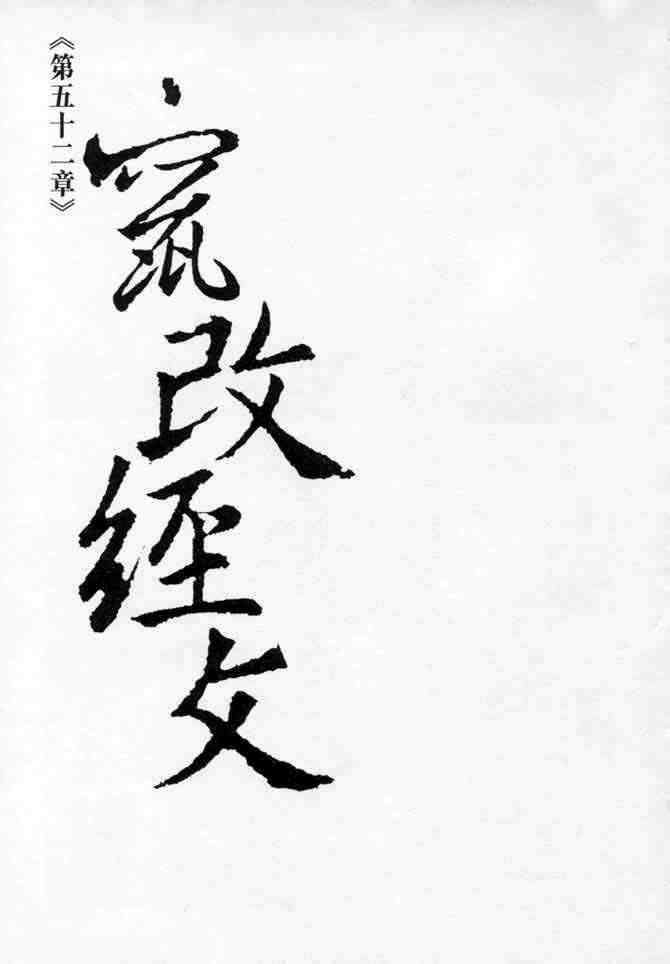 《第五十二章》
竄改經文